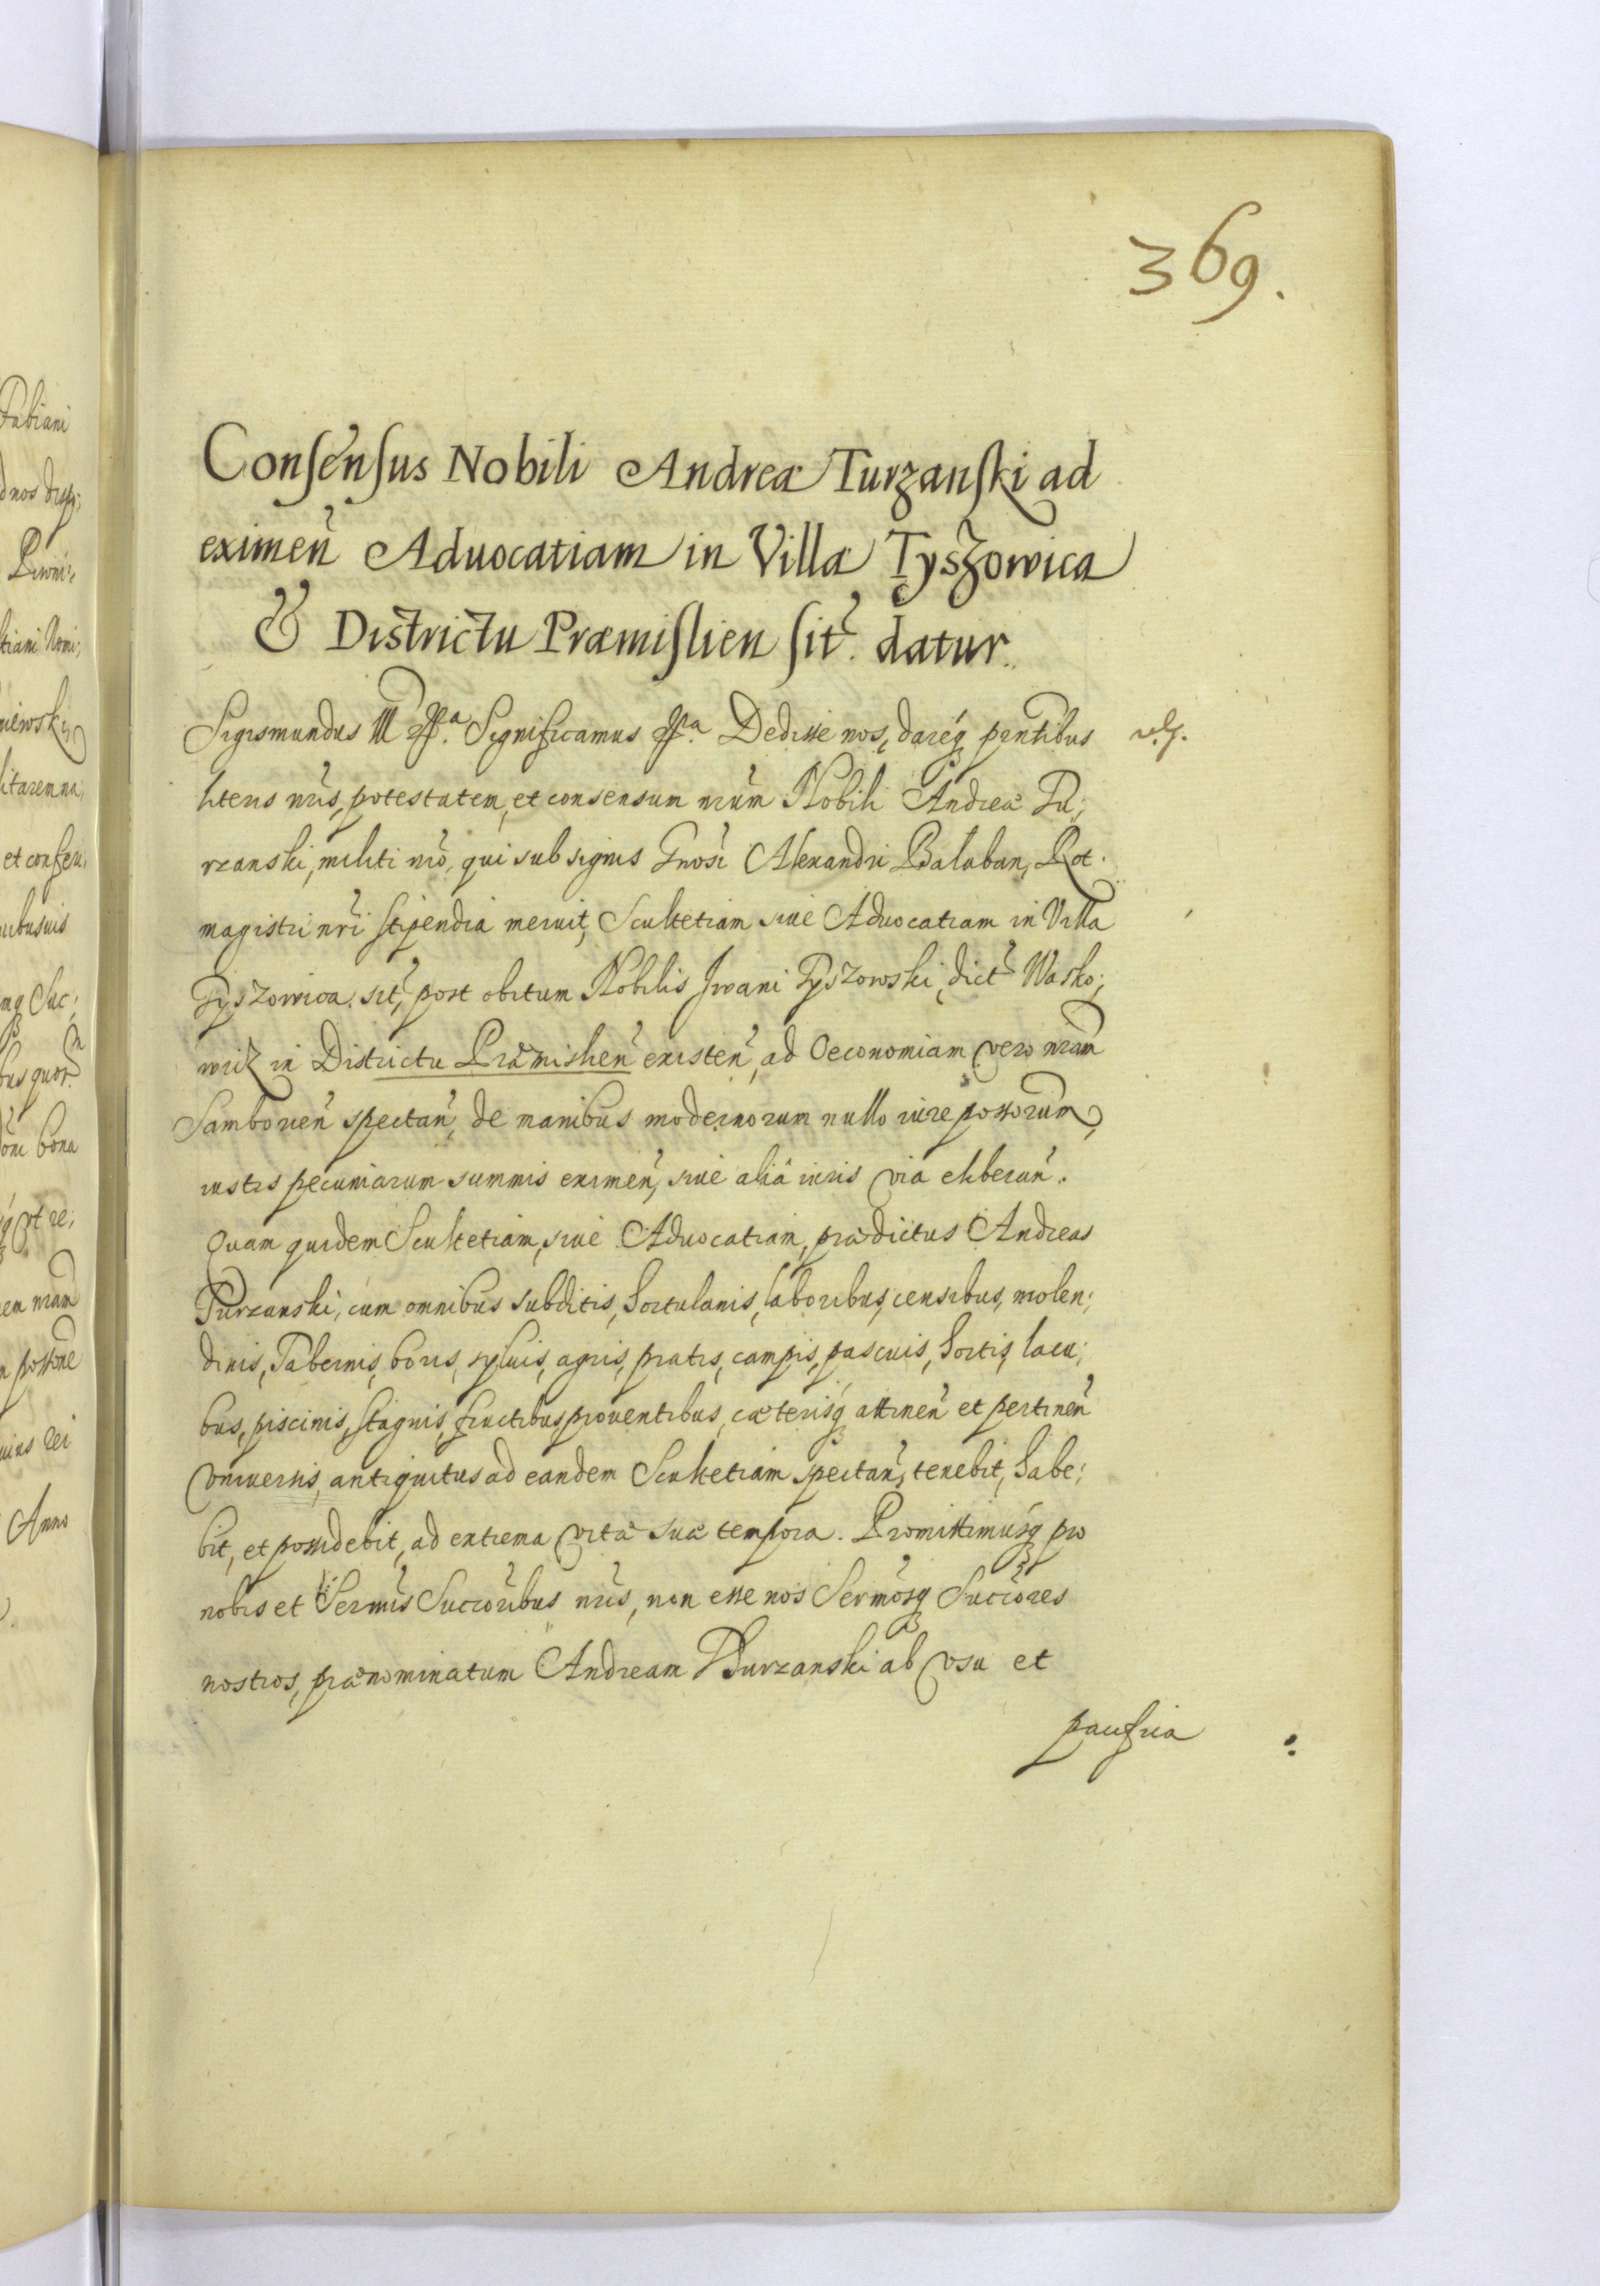 369.
Consensus Nobili Andreæ Turzanski ad
eximen̄ Aduocatiam in Villa Tyszowica
& Districtu Præmislien sit̄. datur.
Sigismundus III Significamus Dedisse nos, dareq́ pn̄tibus
literis nr̄is, potestatem, et consensum nr̄um Nobili Andreæ Tu;
rzanski, militi nr̄o, qui sub signis Gnōsi Alexandri Balaban, Rot.
magistri nr̄i stipendia meruit, Scultetiam siue Aduocatiam in Villa
Tyszowica sit̄, post obitum Nobilis Iwani Tyszowski, dict̄ Wasko;
wicz in Districtu Præmislien̄ existen̄, ad Oeconomiam vero nr̄am
Samborien̄ spectan̄, de manibus modernorum nullo iure possorum,
iustis pecuniarum summis eximen̄, siue aliâ iuris via eliberan̄.
Quam quidem Scultetiam, siue Aduocatiam, prædictus Andreas
Turzanski, cum omnibus subditis, hortulanis, laboribus, censibus, molen;
dinis, Tabernis, boris, syluis, agris, pratis, campis, pascuis, hortis, lacu;
bus, piscinis, stagnis, fructibus prouentibus, cæterisq́ attinen̄ et pertinen̄
vniuersis, antiquitus ad eandem Scultetiam spectan̄, tenebit, habe;
bit, et possidebit, ad extrema vitæ suæ tempora. Promittimusq́ pro
nobis et Serm̄is Succōribus nr̄is, non esse nos Serm̄osq́ Succōres
nostros, prænominatum Andream Thurzanski ab vsu et